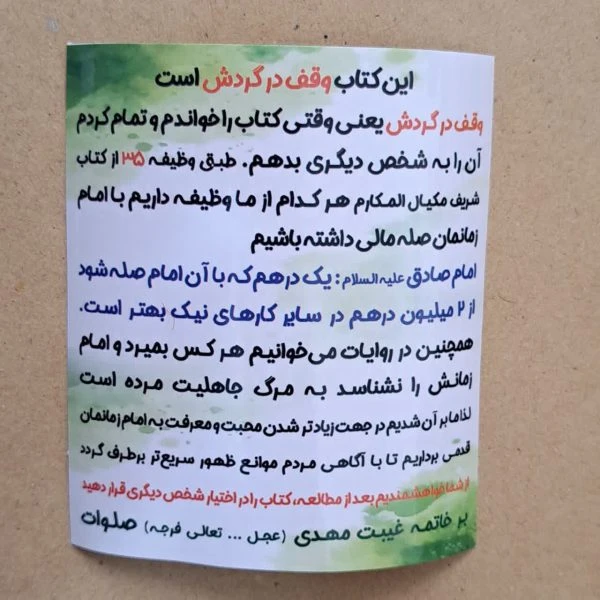 این کتاب وقف در گردش است
وقف در گردش یعنی وقتی کتاب را خواندم و تمام کردم
آن را به شخص دیگری بدهم. طبق وظیفه ۳۵ از کتاب
شریف مکیال المکارم هر کدام از ما وظیفه داریم با امام
زمانمان صله مالی داشته باشیم
امام صادق علیه السلام : یک درهم که با آن امام صله شود
از ۲ میلیون درهم در سایر کارهای نیک بهتر است.
همچنین در روایات می‌خوانیم هر کس بمیرد و امام
زمانش را نشناسد به مرگ جاهلیت مرده است
لذا ما بر آن شدیم در جهت زیاد تر شدن محبت و معرفت به امام زمانمان
قدمی برداریم تا با آگاهی مردم موانع ظهور سریع‌تر برطرف گردد
از شما خواهشمندیم بعد از مطالعه، کتاب را در اختیار شخص دیگری قرار دهید
بر خاتمه غیبت مهدی (عجل ... تعالی فرجه) صلوات